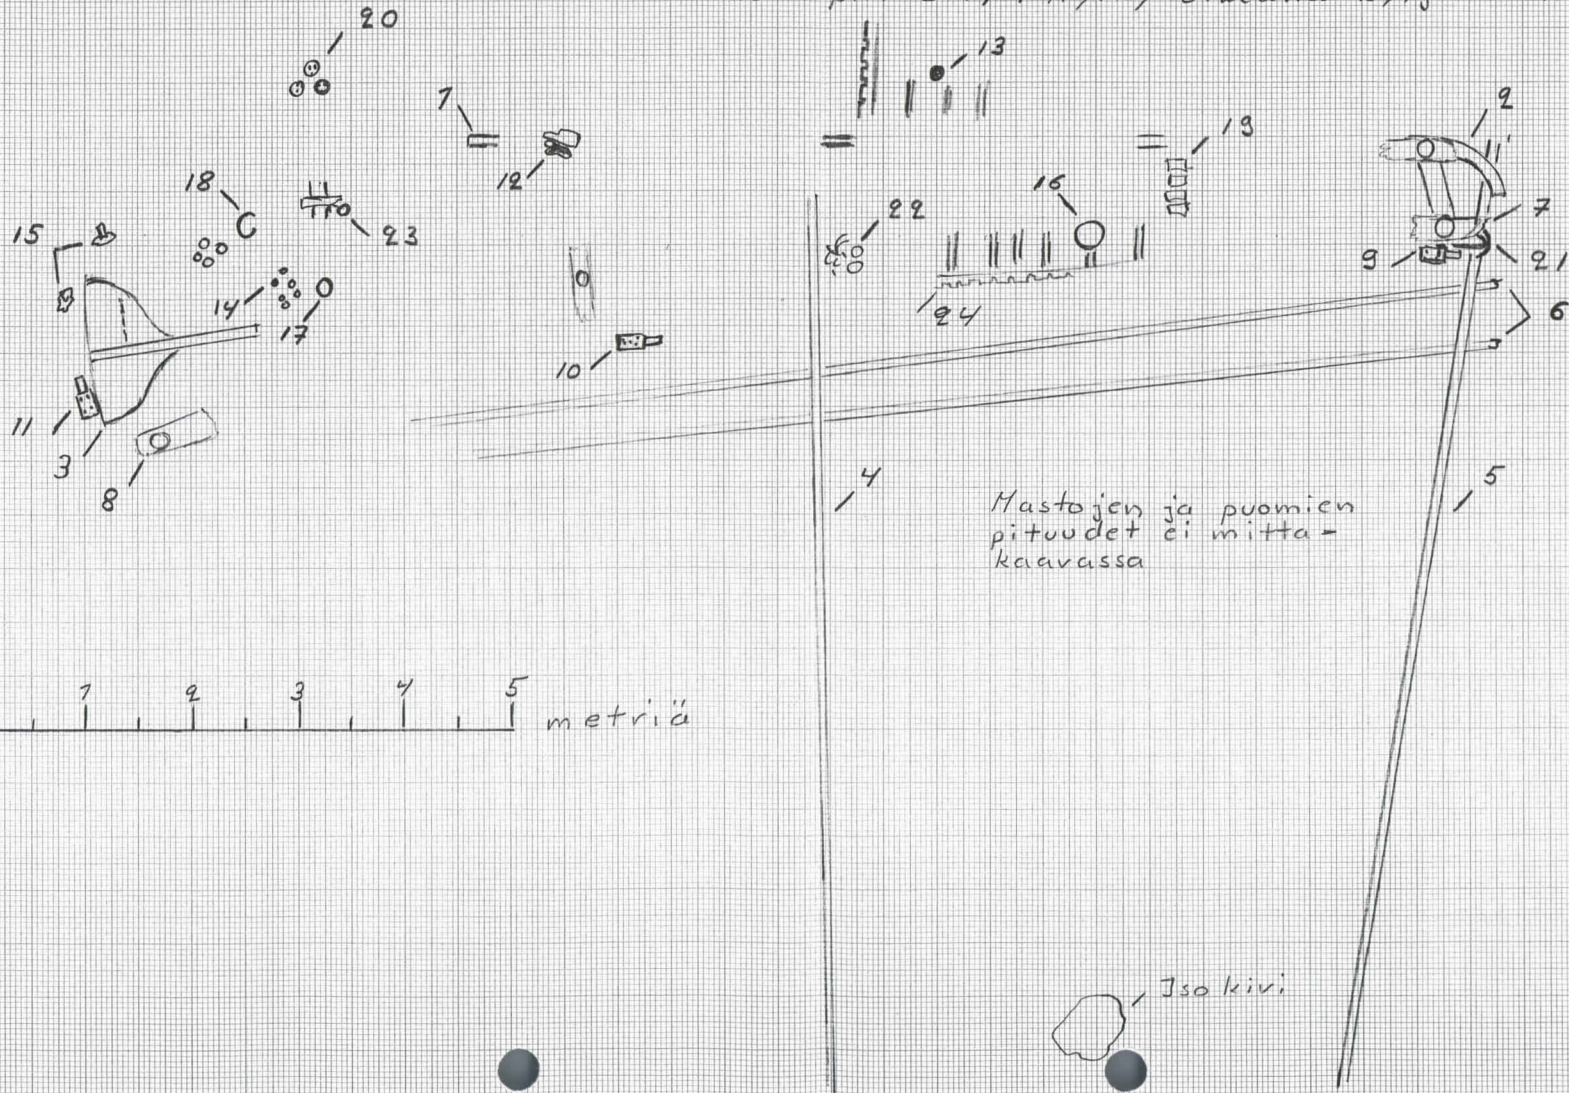 20
13
1
2
19
12
18
16
22
7
15
23
9
21
14
17
24
6
10
11
3
8
4
5
Mastojen ja puomien
pituudet ei mitta-
kaavassa
1 2 3 4 5
metriä
Iso kivi